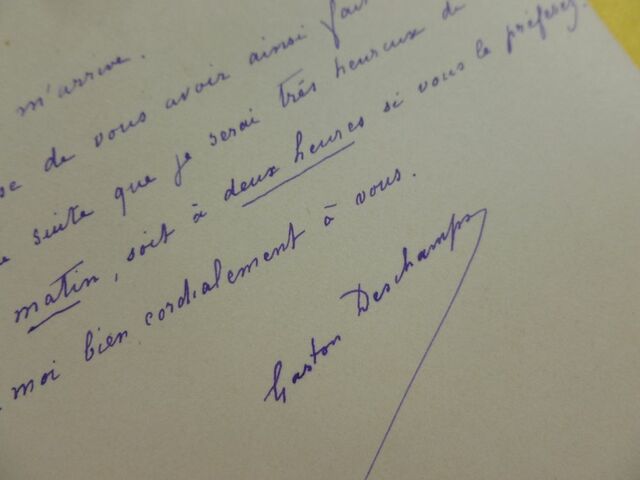 m'arrive.
se de vous avoir ainsi fai
suite que je serai très heureux de
matin, soit à deux heures si vous le préferez.
moi bien cordialement à vous.
Gaston Deschamps